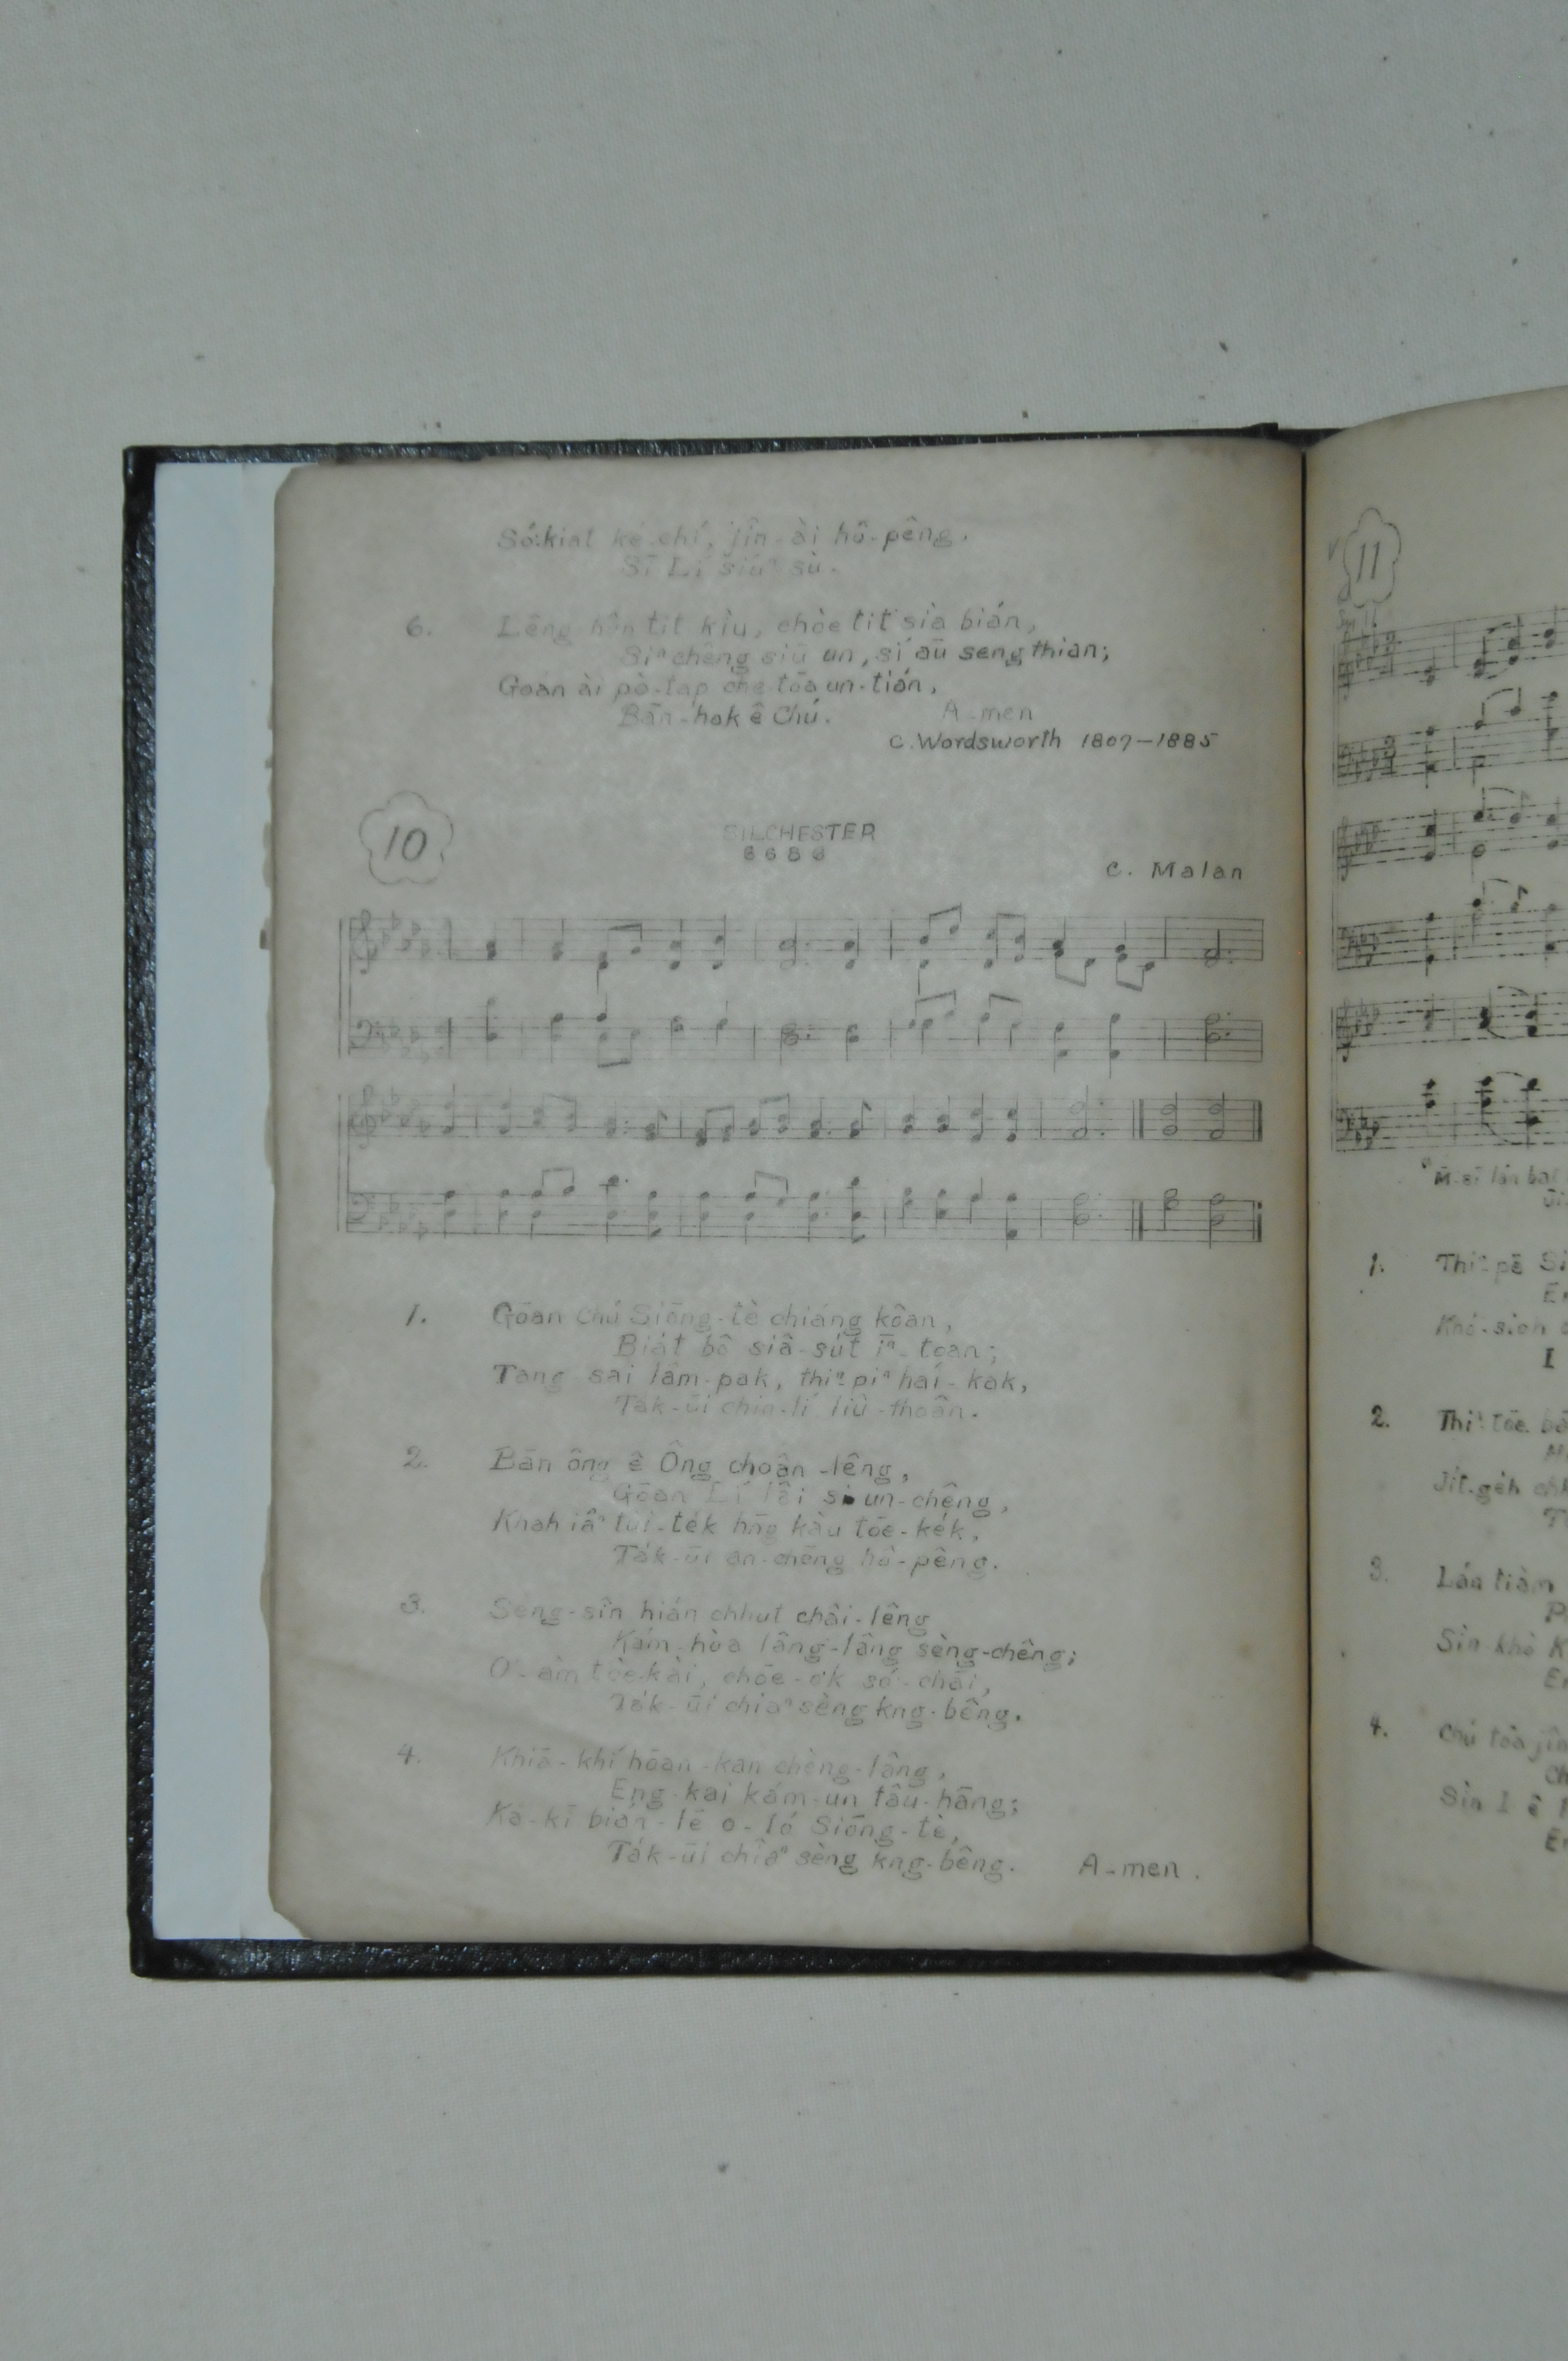 Só͘-kiat ké-chí, jîn-ài hô-pêng.
Sī Lí siúⁿ-sù.
6. Lêng-hûn tit kiù, chōe tit sià-bián,
Siⁿ-chêng siū un, sí āu seng thian;
Goán ài pò-tap che tōa un-tián,
Bān-hok ê Chú. A-men
C. Wordsworth 1807-1885
10
SILCHESTER
6 6 8 6
C. Malan
1. Góan Chú Siōng-tè chiáng kôan,
Biát bô siâ-sut ī-toan;
Tang sai lâm-pak, thiⁿ-piⁿ hái-kak,
Ta̍k-ūi chin-lí liû-thoân.
2. Bān ông ê Ông choân-lêng,
Góan Lí lâi si un-chêng,
Khah iâⁿ tùi-te̍k hn̄g kàu tōe-ke̍k,
Ta̍k-ūi an-chēng hô-pêng.
3. Sèng-sîn hián chhut châi-lêng
Kám-hòa lâng-lâng sèng-chêng;
O͘-àm tōe-kài, chōe-ok só͘-chāi,
Ta̍k-ūi chiâⁿ sèng kng-bêng.
4. Khiā-khí hōan-kan chèng-lâng,
Eng-kai kám-un tâu-hâng;
Ka-kī bián-lē o-ló Siōng-tè,
Ta̍k-ūi chiâⁿ sèng kng-bêng. A-men.
11
1. Thiⁿ-pē
2. Thiⁿ-tōe
3. Lán tiàm
4. Chú tōa
Sìn I ê